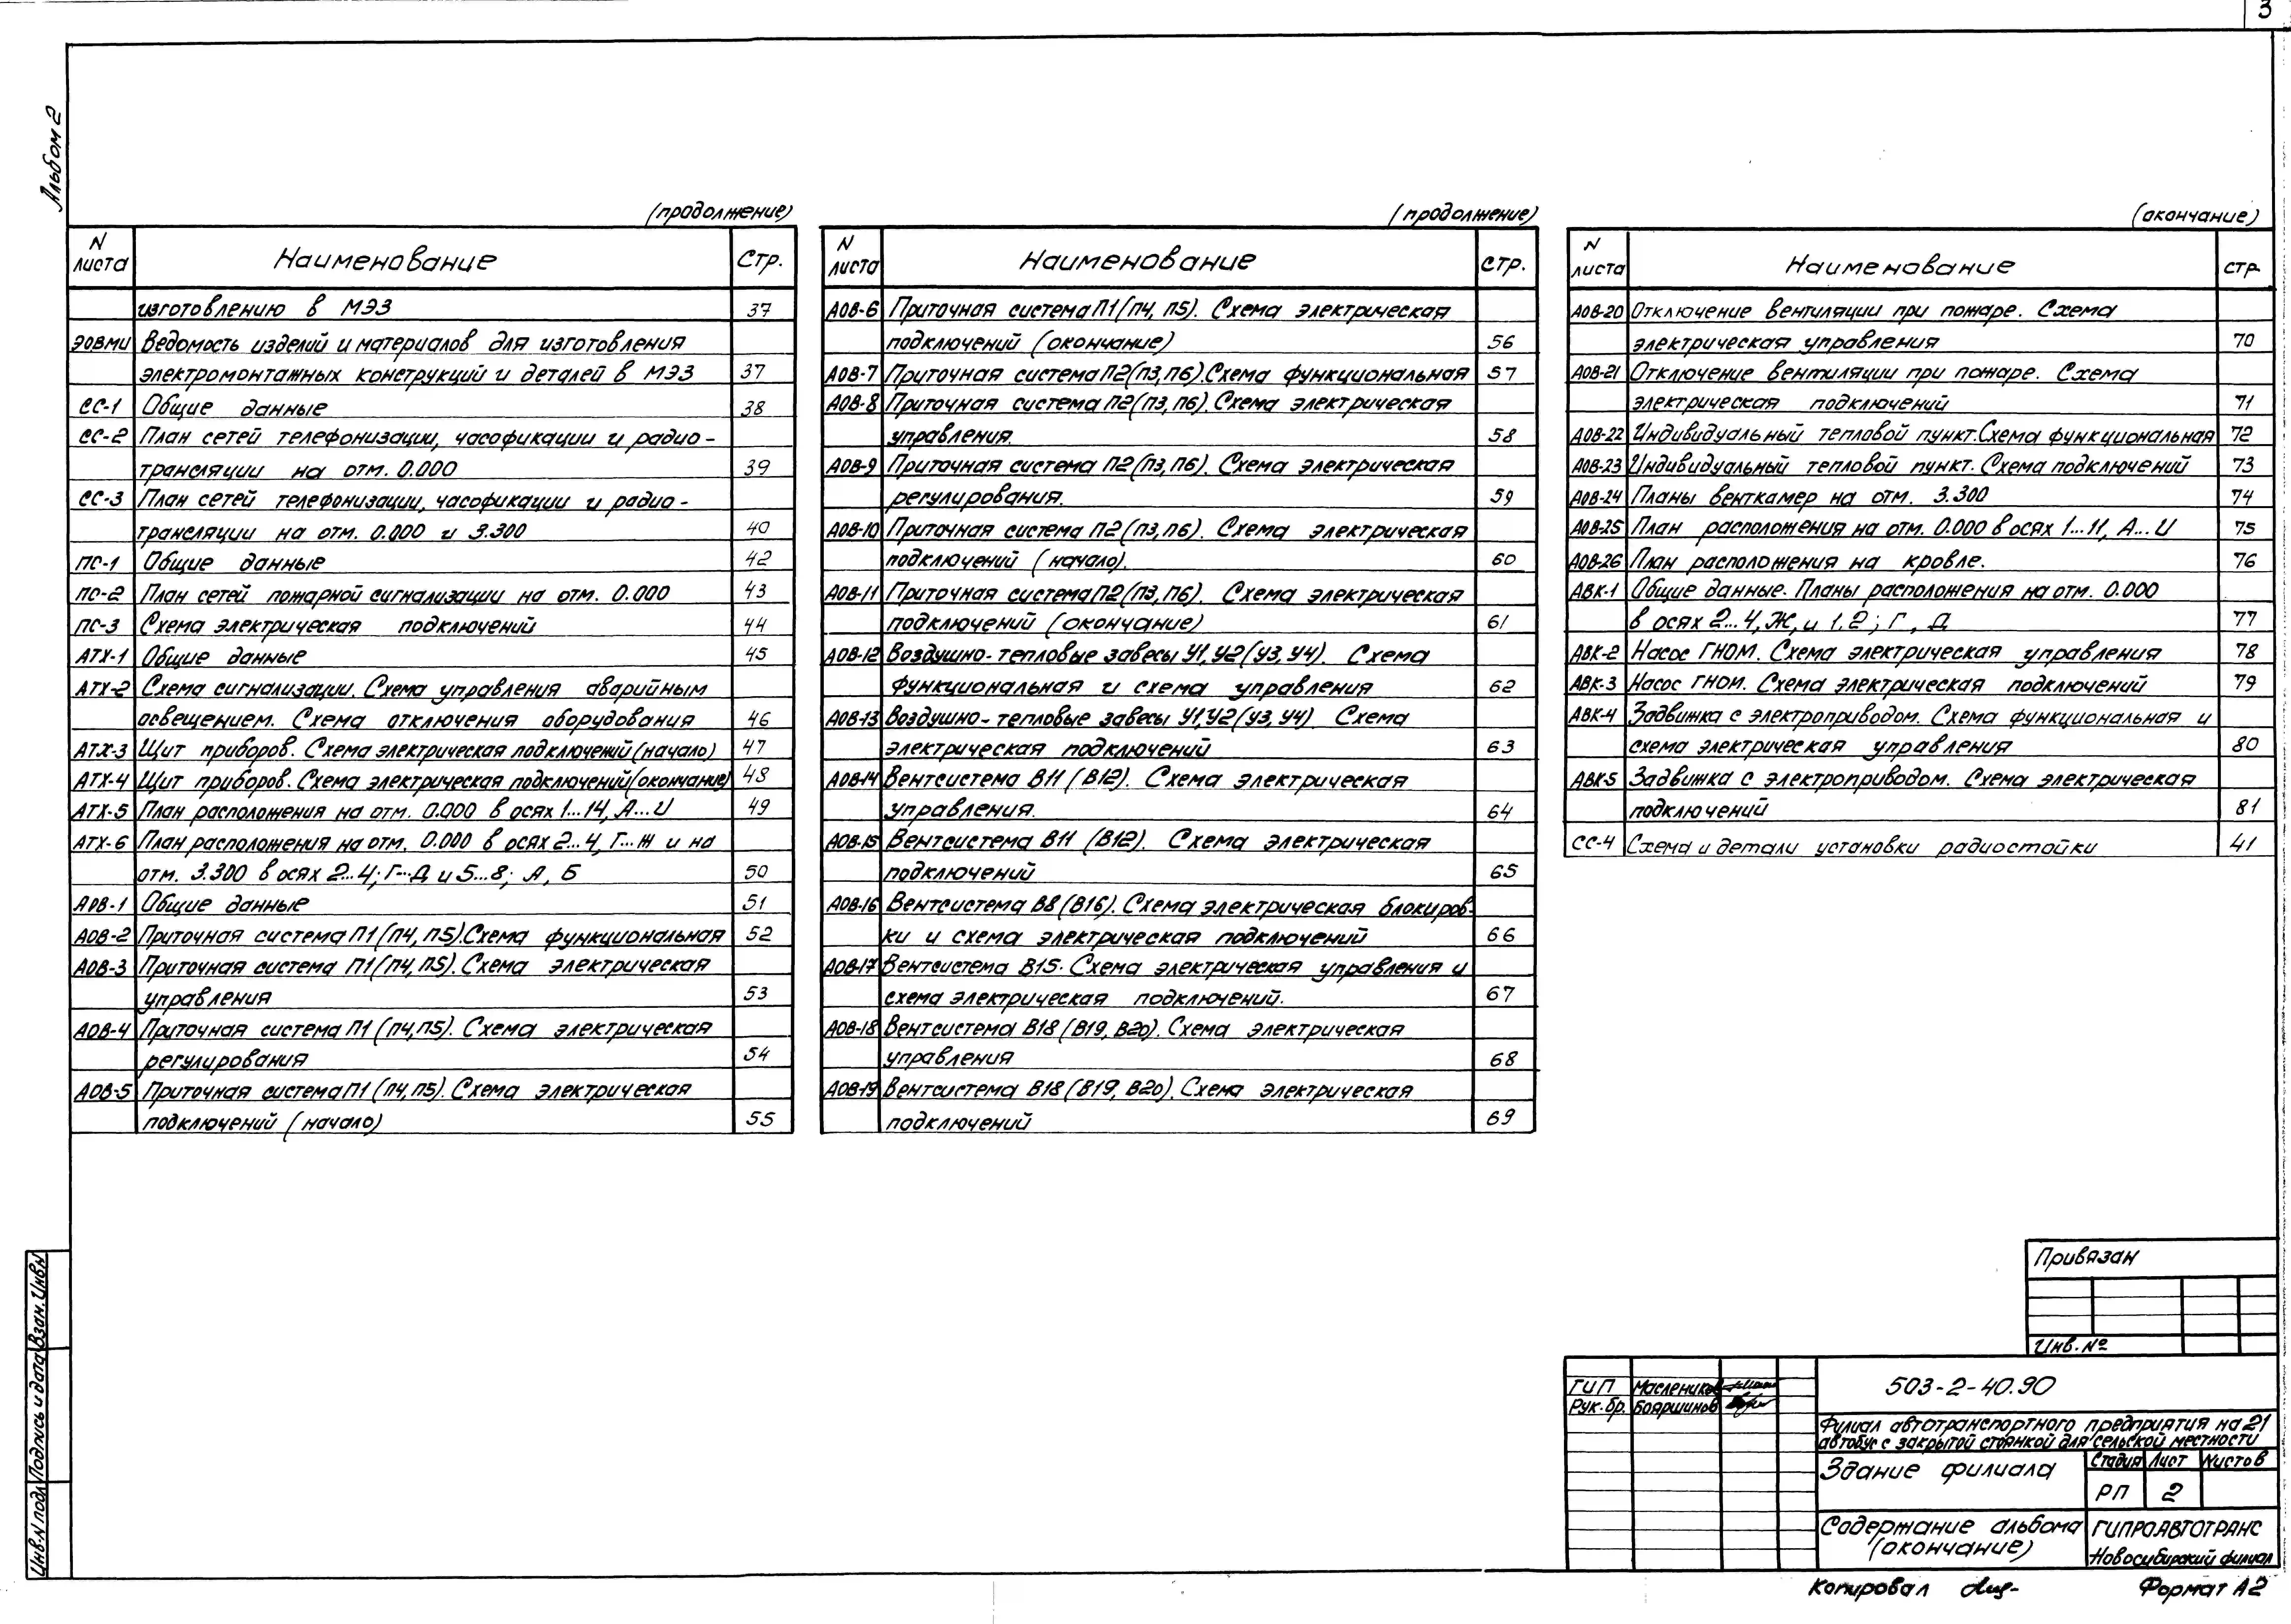 3
Альбом 2
(продолжение)
N листа Наименование Стр.
изготовлению в МЭЗ 37
ЭОВМИ Ведомость изделий и материалов для изготовления
электромонтажных конструкций и деталей в МЭЗ 37
СС-1 Общие данные 38
СС-2 План сетей телефонизации, часофикации и радио-
трансляции на отм. 0.000 39
СС-3 План сетей телефонизации, часофикации и радио-
трансляции на отм. 0.000 и 3.300 40
ПС-1 Общие данные 42
ПС-2 План сетей пожарной сигнализации на отм. 0.000 43
ПС-3 Схема электрическая подключений 44
АТХ-1 Общие данные 45
АТХ-2 Схема сигнализации. Схема управления аварийным
освещением. Схема отключения оборудования 46
АТХ-3 Щит приборов. Схема электрическая подключений (начало) 47
АТХ-4 Щит приборов. Схема электрическая подключений (окончание) 48
АТХ-5 План расположения на отм. 0.000 в осях 1...14, А...И 49
АТХ-6 План расположения на отм. 0.000 в осях 2...4, Г...Ж и на
отм. 3.300 в осях 2...4; Г...Д и 5...8; А, Б 50
АОВ-1 Общие данные 51
АОВ-2 Приточная система П1 (П4, П5). Схема функциональная 52
АОВ-3 Приточная система П1 (П4, П5). Схема электрическая
управления 53
АОВ-4 Приточная система П1 (П4, П5). Схема электрическая
регулирования 54
АОВ-5 Приточная система П1 (П4, П5). Схема электрическая
подключений (начало) 55
(продолжение)
N листа Наименование стр.
АОВ-6 Приточная система П1 (П4, П5). Схема электрическая
подключений (окончание) 56
АОВ-7 Приточная система П2 (П3, П6). Схема функциональная 57
АОВ-8 Приточная система П2 (П3, П6). Схема электрическая
управления. 58
АОВ-9 Приточная система П2 (П3, П6). Схема электрическая
регулирования. 59
АОВ-10 Приточная система П2 (П3, П6). Схема электрическая
подключений (начало). 60
АОВ-11 Приточная система П2 (П3, П6). Схема электрическая
подключений (окончание) 61
АОВ-12 Воздушно-тепловые завесы У1, У2 (У3, У4). Схема
функциональная и схема управления 62
АОВ-13 Воздушно-тепловые завесы У1, У2 (У3, У4) Схема
электрическая подключений 63
АОВ-14 Вентсистема В11 (В12). Схема электрическая
управления. 64
АОВ-15 Вентсистема В11 (В12). Схема электрическая
подключений 65
АОВ-16 Вентсистема В8 (В16). Схема электрическая блокиров-
ки и схема электрическая подключений 66
АОВ-17 Вентсистема В15. Схема электрическая управления и
схема электрическая подключений. 67
АОВ-18 Вентсистема В18 (В19, В20). Схема электрическая
управления 68
АОВ-19 Вентсистема В18 (В19, В20). Схема электрическая
подключений 69
(окончание)
N листа Наименование стр.
АОВ-20 Отключение вентиляции при пожаре. Схема
электрическая управления 70
АОВ-21 Отключение вентиляции при пожаре. Схема
электрическая подключений 71
АОВ-22 Индивидуальный тепловой пункт. Схема функциональная 72
АОВ-23 Индивидуальный тепловой пункт. Схема подключений 73
АОВ-24 Планы венткамер на отм. 3.300 74
АОВ-25 План расположения на отм. 0.000 в осях 1...11, А...И 75
АОВ-26 План расположения на кровле. 76
АВК-1 Общие данные. Планы расположения на отм. 0.000
в осях 2...4, Ж, и 1, 2; Г, Д 77
АВК-2 Насос ГНОМ. Схема электрическая управления 78
АВК-3 Насос ГНОМ. Схема электрическая подключений 79
АВК-4 Задвижка с электроприводом. Схема функциональная и
схема электрическая управления 80
АВК-5 Задвижка с электроприводом. Схема электрическая
подключений 81
СС-4 Схема и детали установки радиостойки 41
Привязан
Инв. №
ГИП Маслеников
Рук. бр. Бояршинов
503-2-40.90
Филиал автотранспортного предприятия на 21
автобус с закрытой стоянкой для сельской местности
Здание филиала
Стадия Лист Листов
РП 2
Содержание альбома
(окончание)
ГИПРОАВТОТРАНС
Новосибирский филиал
Копировал
Формат А2
Инв. N подл. Подпись и дата Взам. Инв N